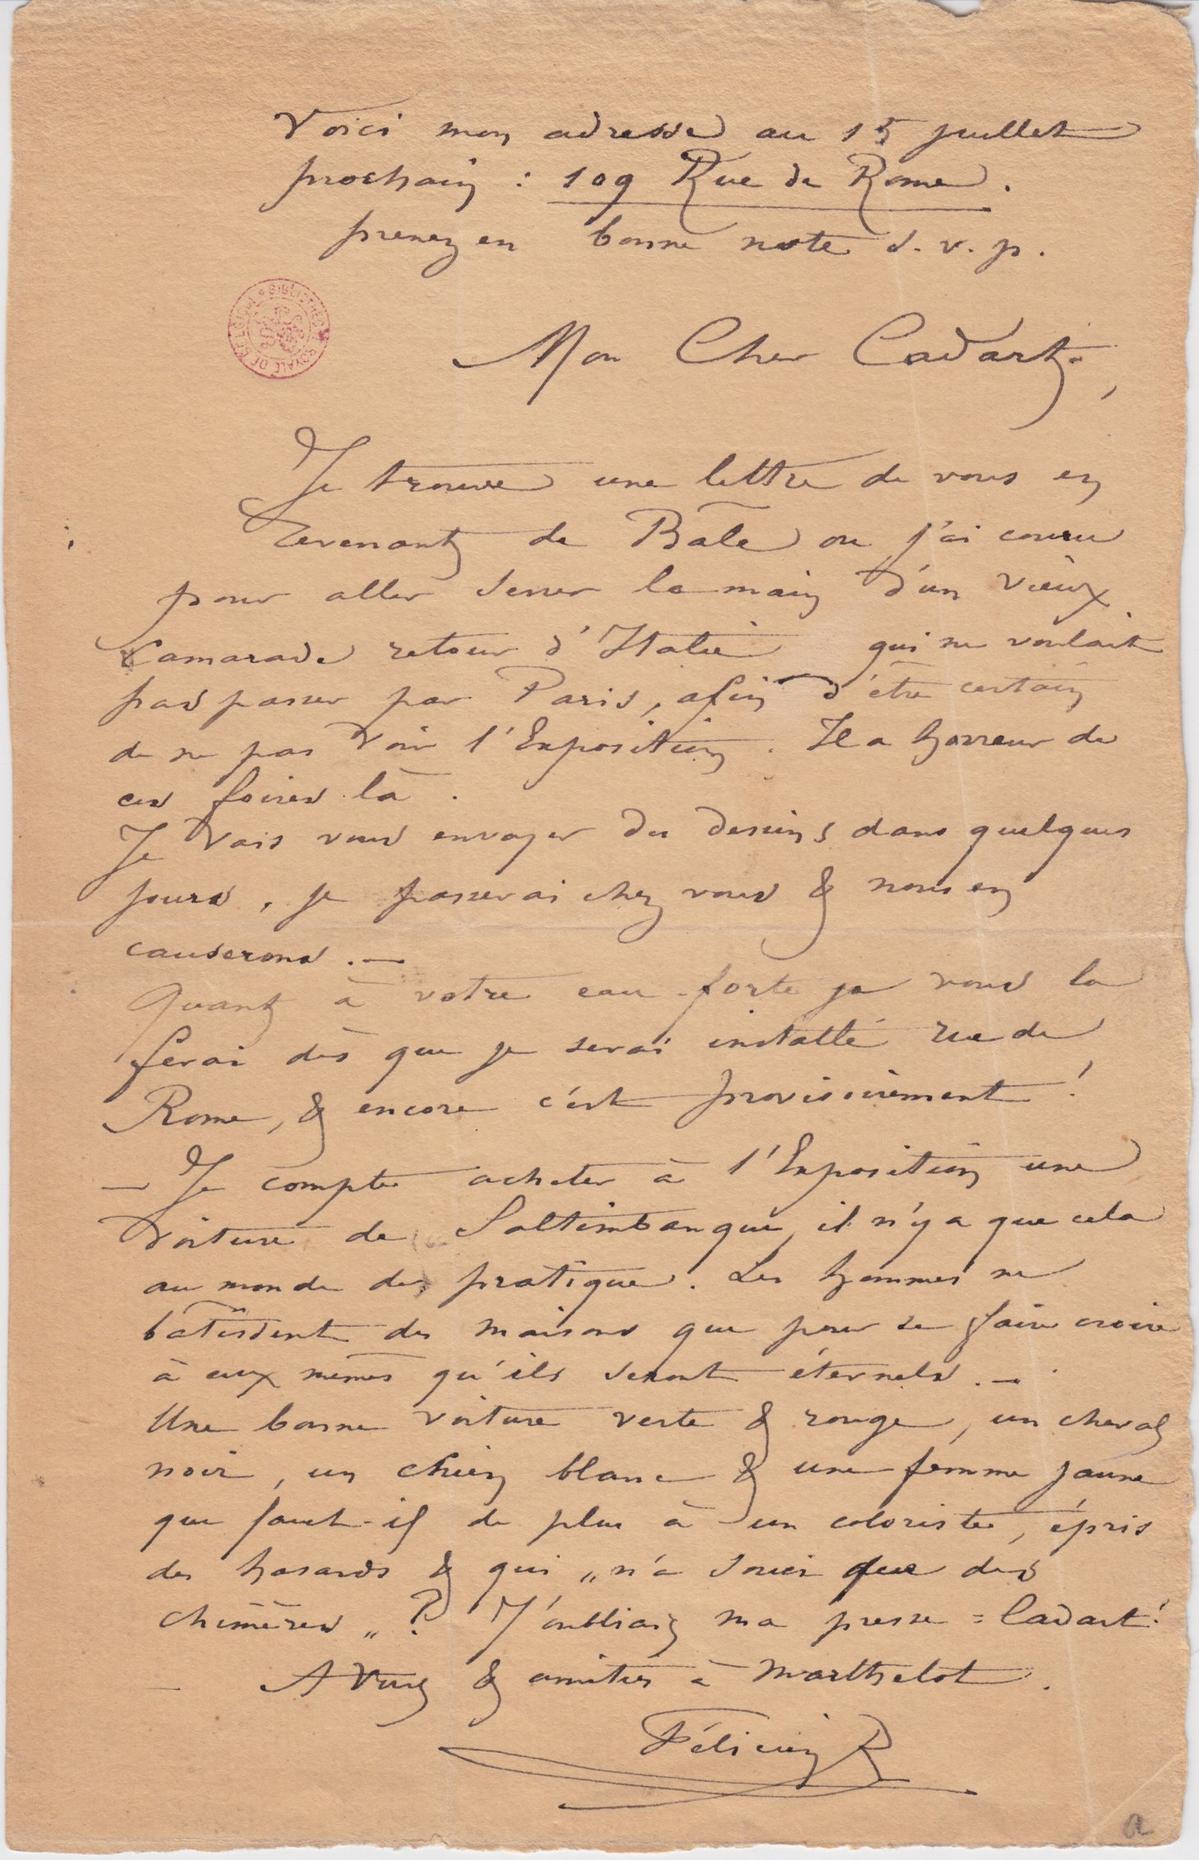 Voici mon adresse au 15 juillet
prochain : 109 Rue de Rome.
prenez en bonne note s. v. p.
BIBLIOTHECA ROYALE DE BELGICA
Mon Cher Cadart,
Je trouve une lettre de vous en
revenant de Bâle ou j'ai couru
pour aller serrer la main d'un vieux
Camarade retour d'Italie qui ne voulait
pas passer par Paris, afin d'être certain
de ne pas voir l'Exposition. Il a horreur de
ces foires là.
Je vais vous envoyer des dessins dans quelques
jours, je passerai chez vous & nous en
causerons. —
Quant à votre eau-forte je vous la
ferai dès que je serai installé rue de
Rome, & encore c'est provisoirement !
— Je compte acheter à l'Exposition une
voiture de Saltimbanque, il n'y a que cela
au monde de pratique. Les hommes ne
bâtissent des maisons que pour se faire croire
à eux mêmes qu'ils seront éternels. —
Une bonne voiture verte & rouge, un cheval
noir, un chien blanc & une femme jaune
que faut-il de plus à un coloriste, épris
des hasards & qui „ n'a souci que des
chimères „ ? J'oubliais ma presse = Cadart !
A Vous & amitiés à Marthelot.
Félicien R
a